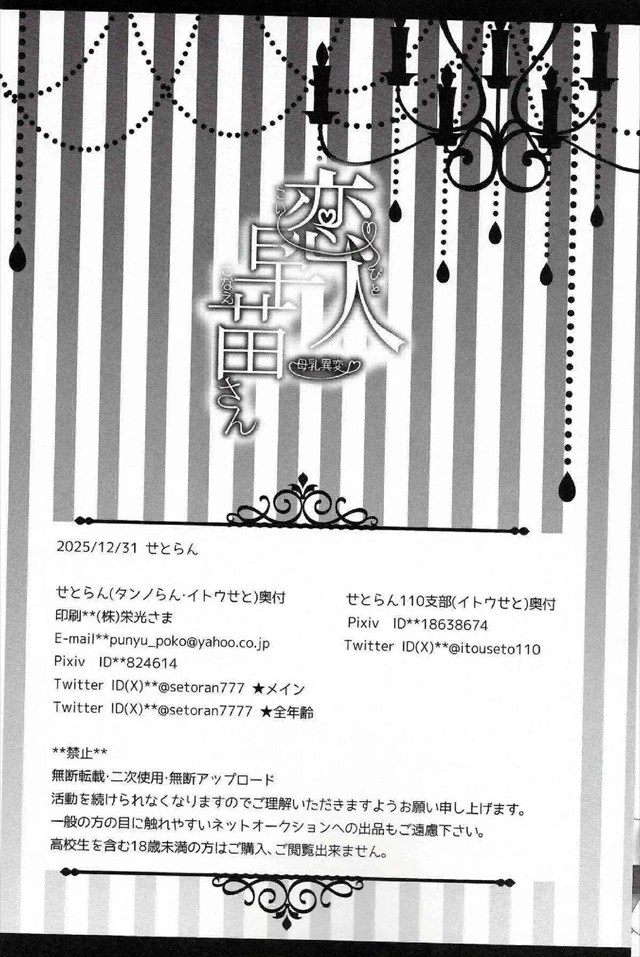 恋人
こい
びと
早苗さん
さなえ
母乳異変
2025/12/31 せとらん
せとらん(タンノらん・イトウせと)奥付
印刷**(株)栄光さま
E-mail**punyu_poko@yahoo.co.jp
Pixiv ID**824614
Twitter ID(X)**@setoran777 ★メイン
Twitter ID(X)**@setoran7777 ★全年齢
せとらん110支部(イトウせと)奥付
Pixiv ID**18638674
Twitter ID(X)**@itouseto110
**禁止**
無断転載・二次使用・無断アップロード
活動を続けられなくなりますのでご理解いただきますようお願い申し上げます。
一般の方の目に触れやすいネットオークションへの出品もご遠慮下さい。
高校生を含む18歳未満の方はご購入、ご閲覧出来ません。